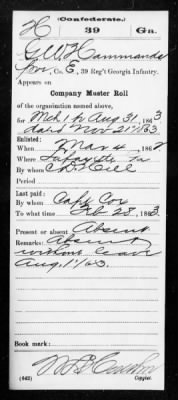 (Confederate.)
H 39 Ga.
G W Hammonds
Pvt, Co. E, 39 Reg't Georgia Infantry.
Appears on
Company Muster Roll
of the organization named above,
for Mch 1 to Aug 31, 1863
dated Nov 21, 1863
Enlisted:
When Mar 4, 1862
Where Lafayette Ga
By whom Hill
Period
Last paid:
By whom Capt Cox
To what time Feb 28, 1863
Present or absent Absent
Remarks: Absent
without leave
Aug. 1 '63.
Book mark:
(642) Copyist.